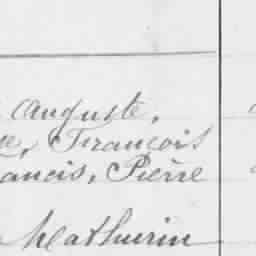 Auguste,
François
ancis, Pierre
Mathurin